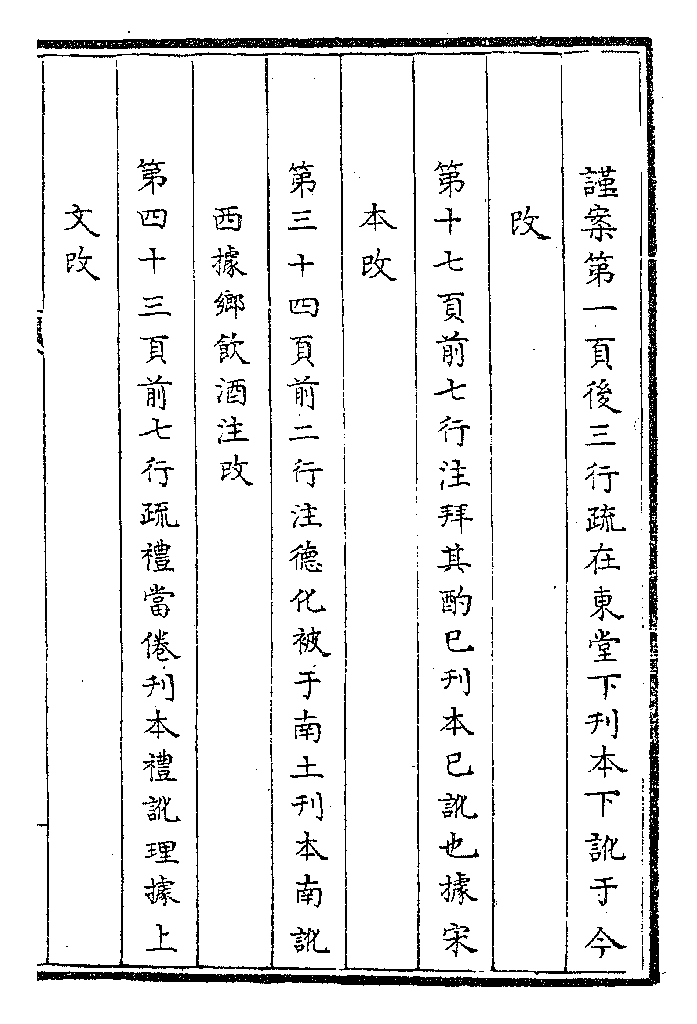 謹案第一頁後三行疏在東堂下刊本下訛于今
改
第十七頁前七行注拜其酌已刊本已訛也據宋
本改
第三十四頁前二行注德化被于南土刊本南訛
西據鄉飲酒注改
第四十三頁前七行疏禮當倦刊本禮訛理據上
文改